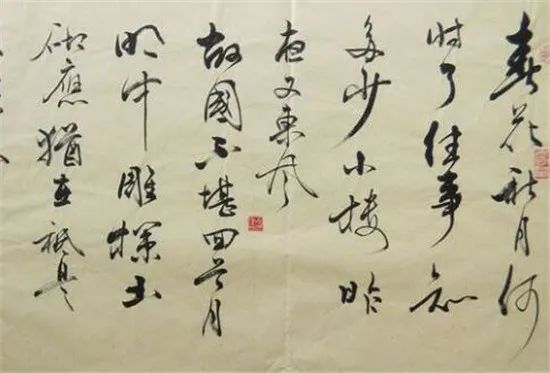 春花秋月何
时了往事知
多少小楼昨
夜又東风
故國不堪回首月
明中雕欄玉
砌應猶在祇是